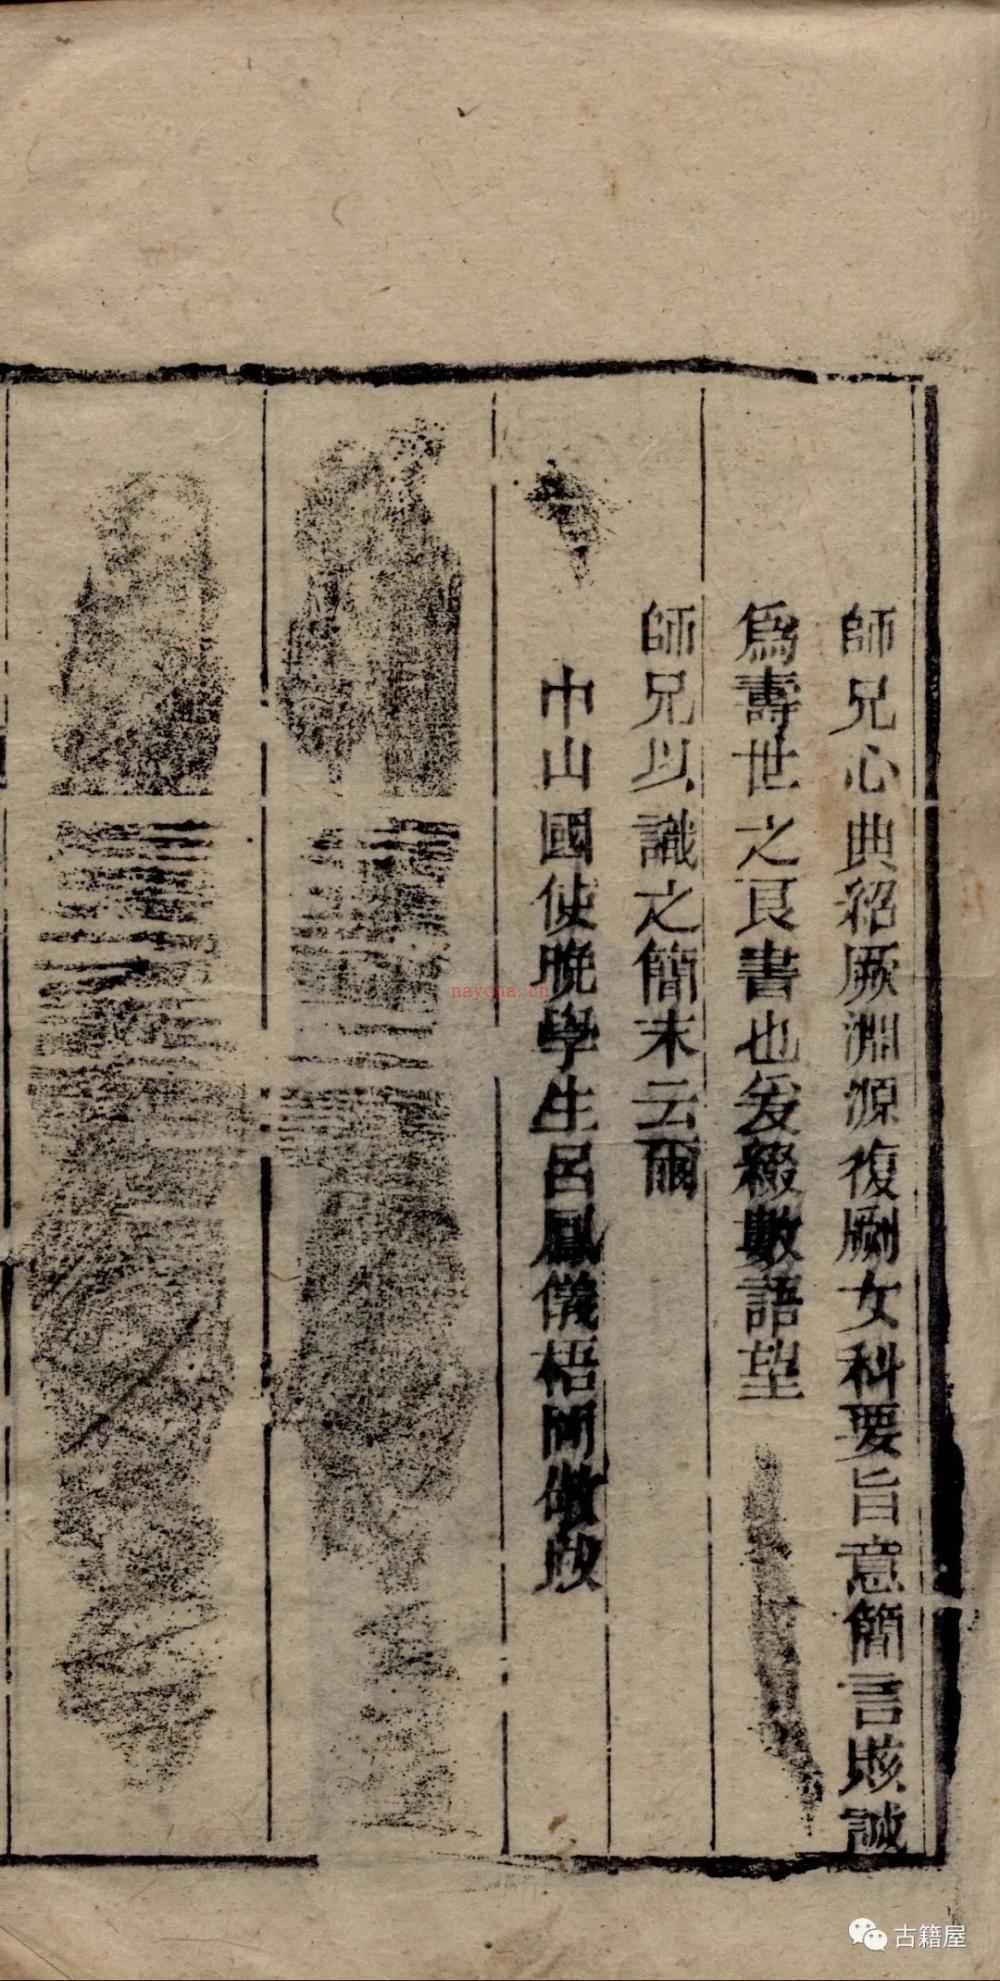 師兄心典紹厥淵源復劂女科要旨意簡言賅誠
為壽世之良書也爰綴數語望
師兄以識之簡末云爾
中山國使晚學生呂鳳儀梧岡敬跋
nayona.cn
古籍屋